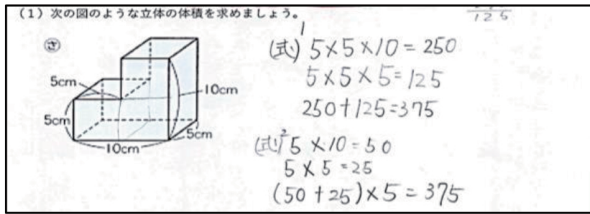 (1) 次の図のような立体の体積を求めましょう。
125
さ
5cm
5cm
10cm
5cm
10cm
(式)1 5×5×10=250
5×5×5=125
250+125=375
(式)2 5×10=50
5×5=25
(50+25)×5=375